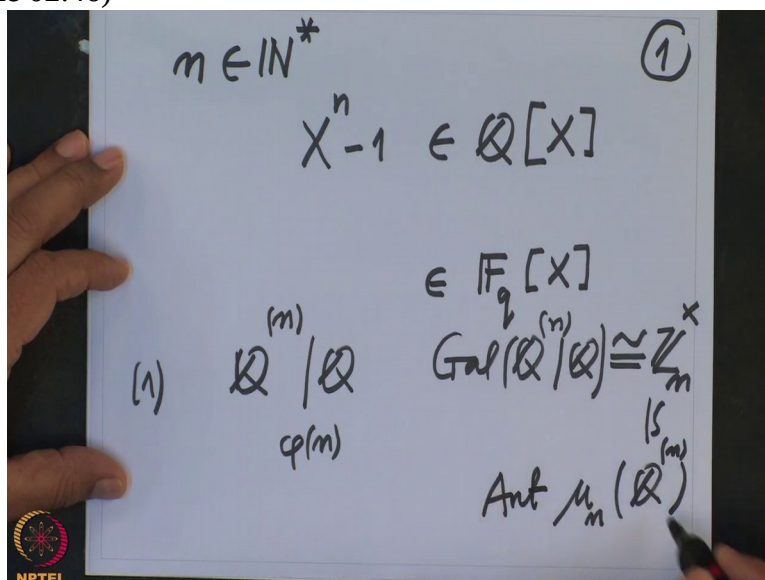 n ∈ ℕ* ①
Xⁿ-1 ∈ ℚ[X]
∈ 𝔽_q[X]
(1) ℚ⁽ⁿ⁾|ℚ Gal(ℚ⁽ⁿ⁾|ℚ) ≅ ℤₙˣ
φ(n) |S
Aut μₙ(ℚ⁽ⁿ⁾)
NPTEL